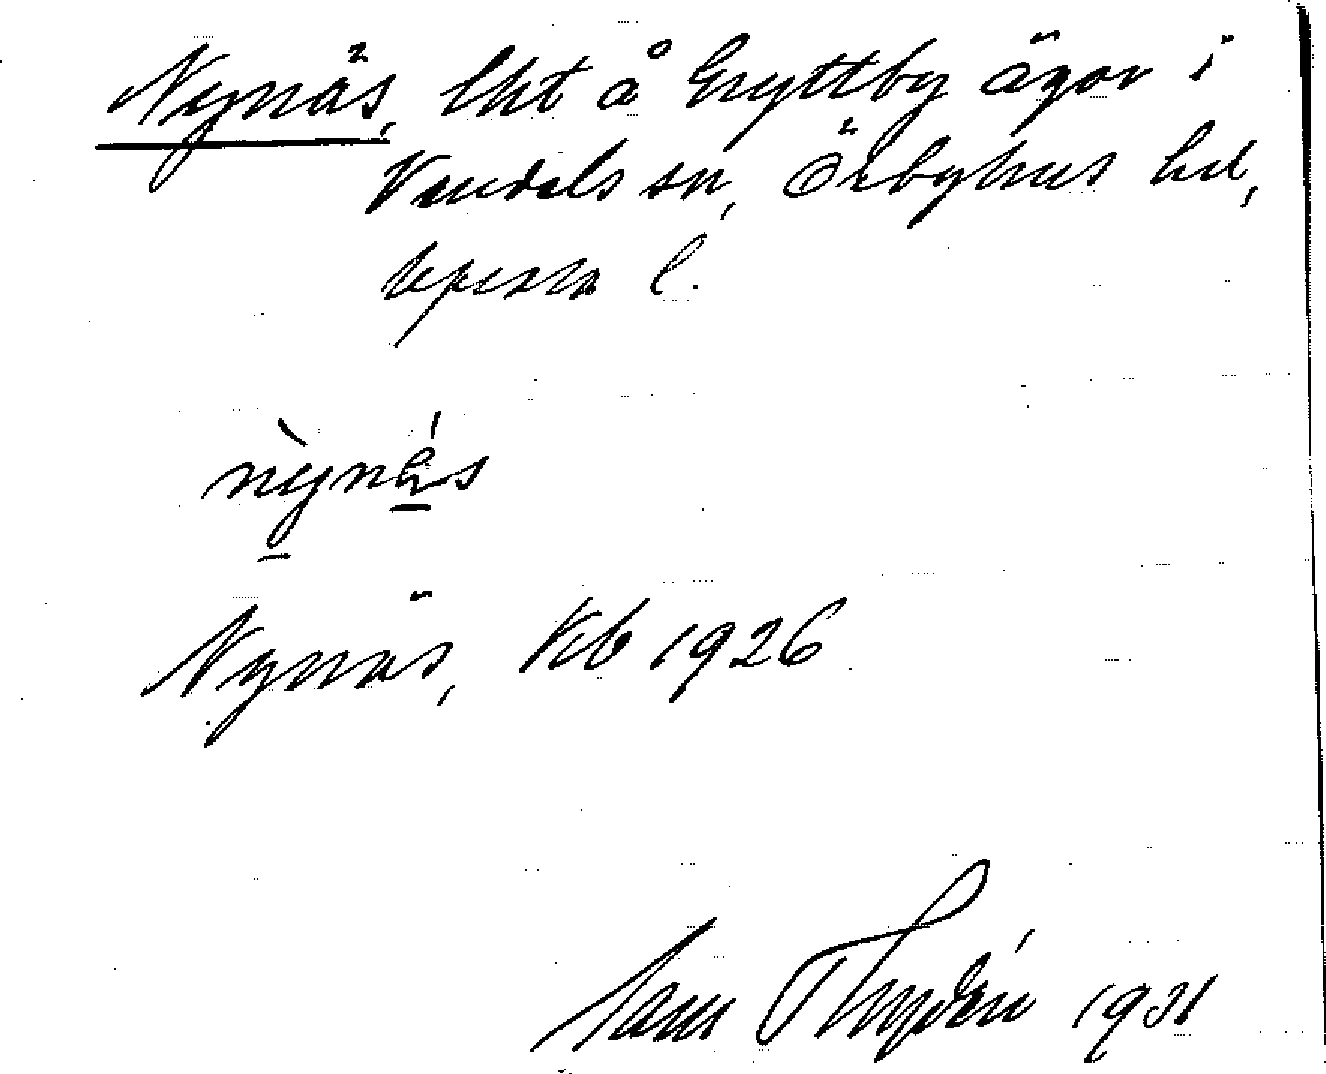 Nynäs, lht å Gryttby ägor i
Vendels sn, Örbyhus hd,
Uppsala l.
nỳnä́s
Nynäs, Kb 1926
Sam Thydén 1931